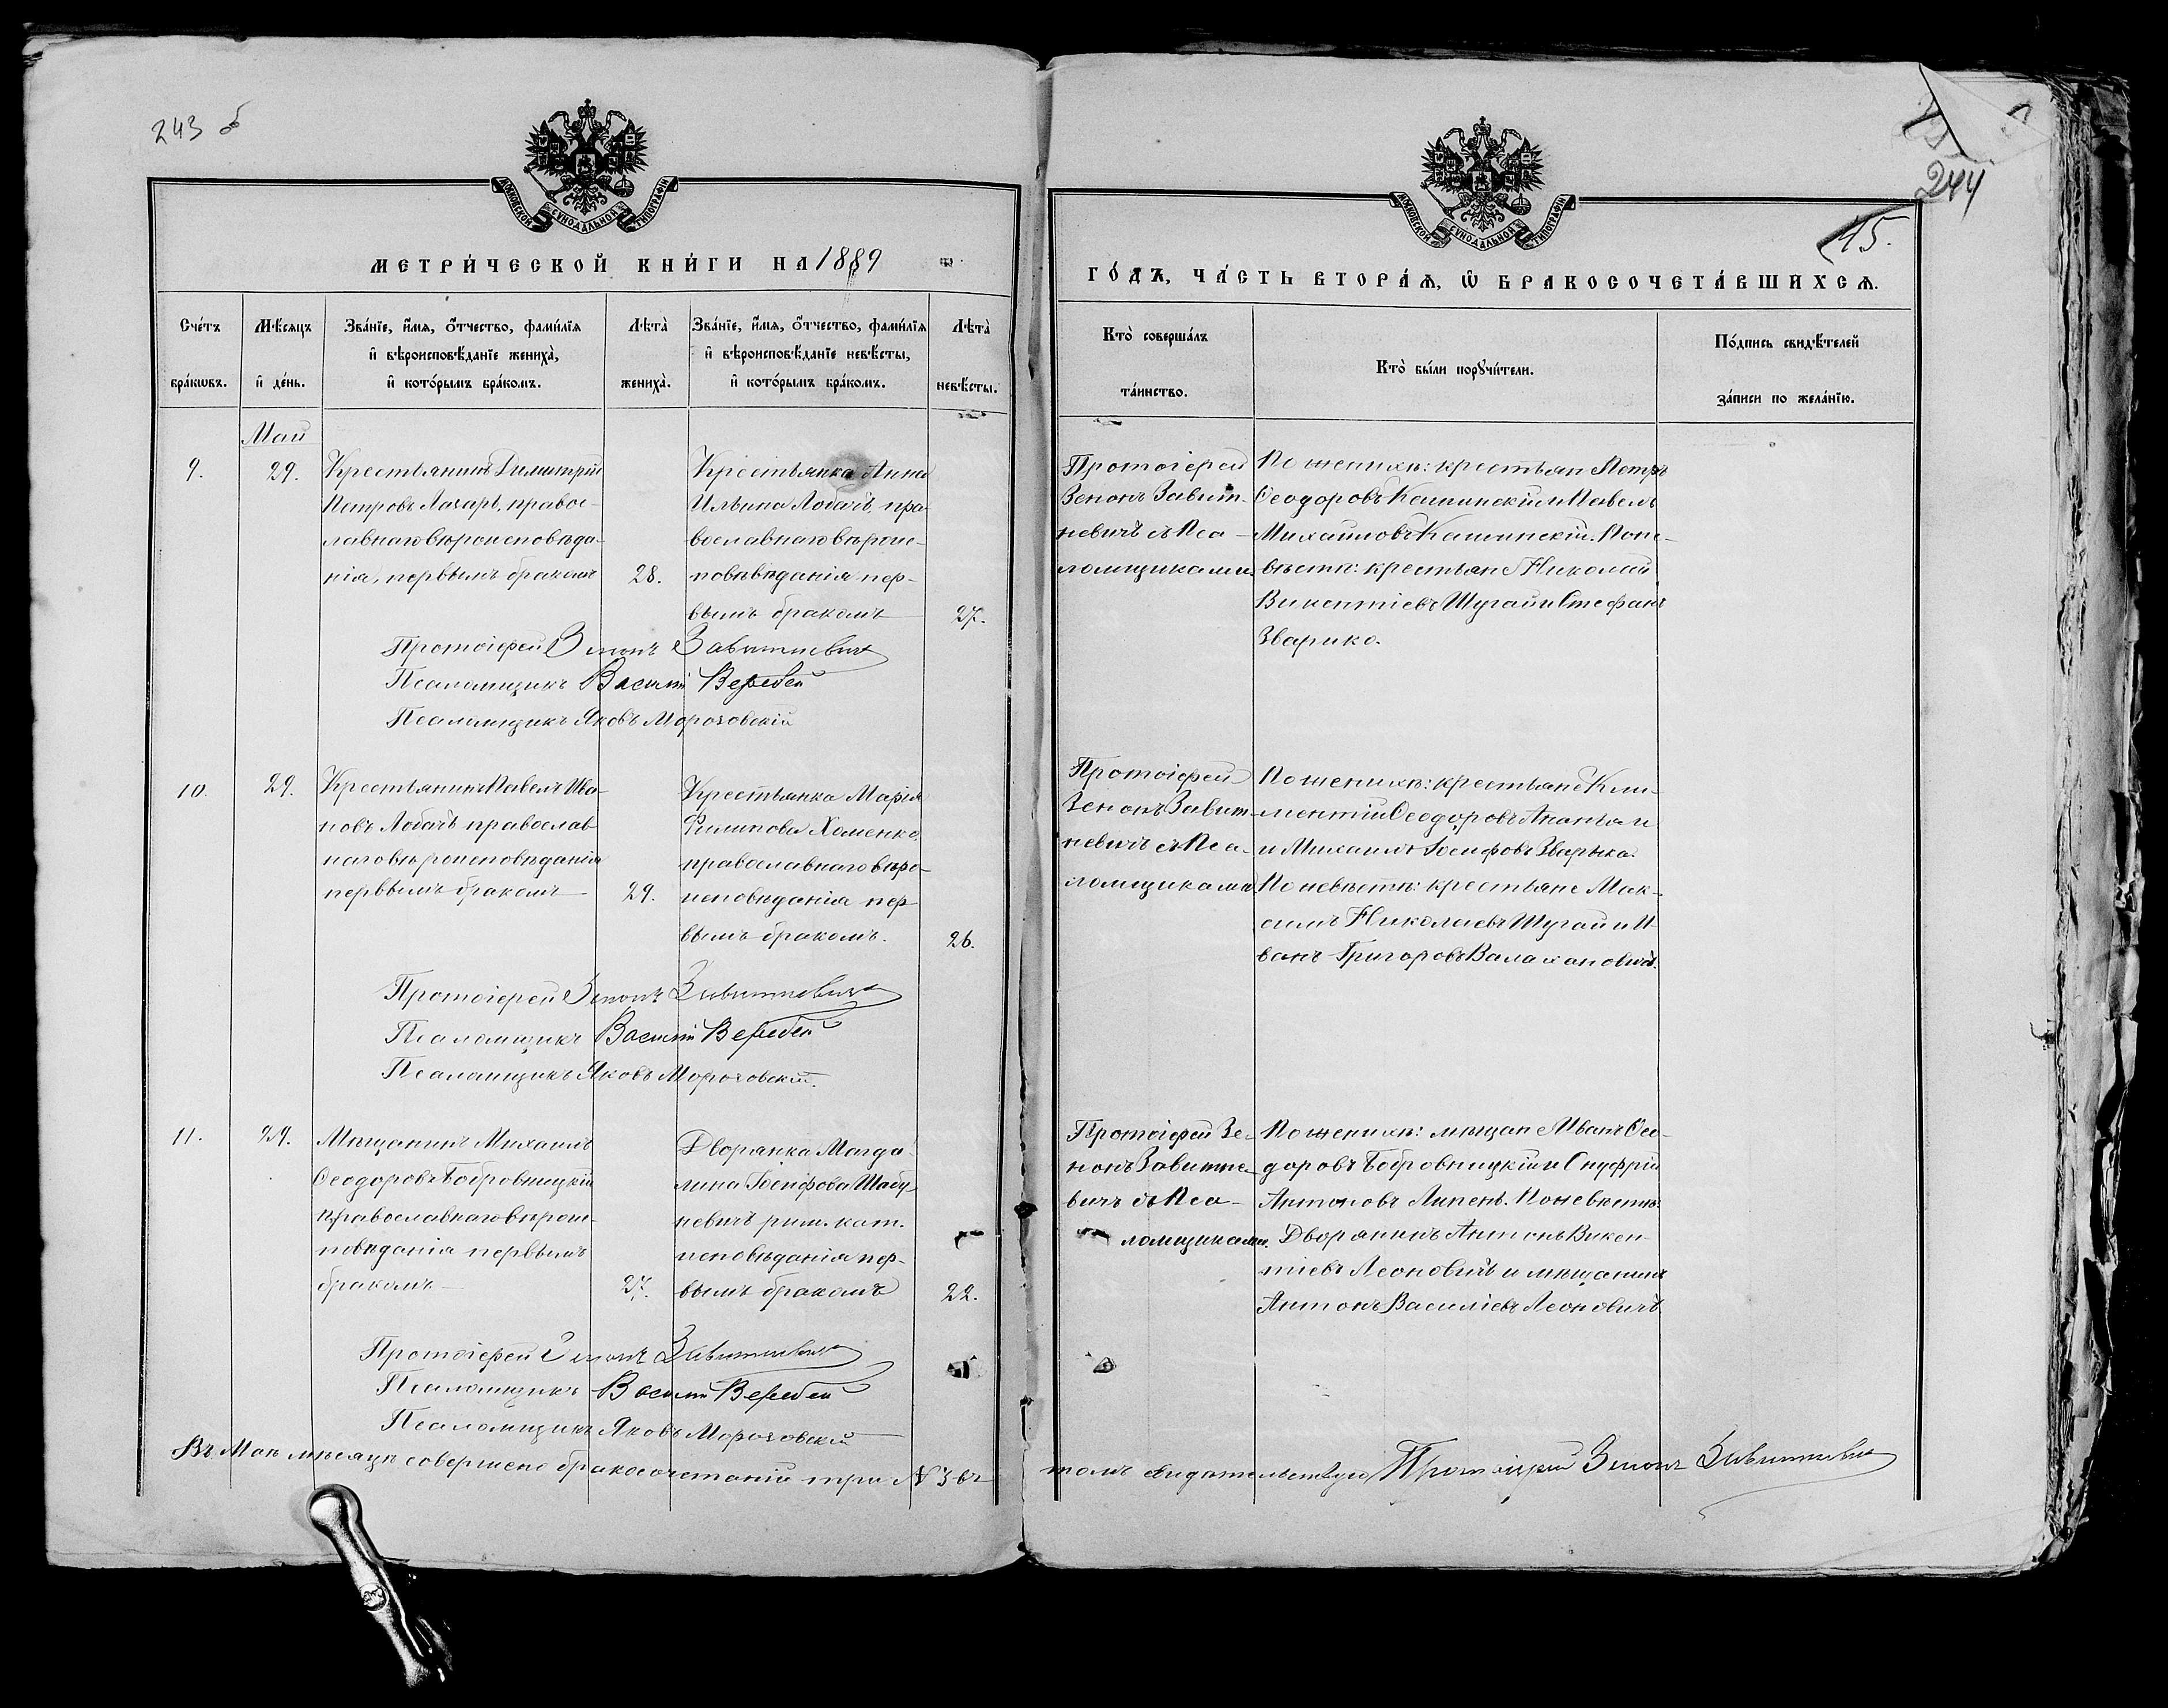 243 б
МОСКОВСКОЙ СУНОДАЛЬНОЙ ТИПОГРАФІИ
МЕТРИ́ЧЕСКОЙ КНИ́ГИ НА 1889
Сче́тъ бра́кѡвъ.
Мѣ́сяцъ и҆ де́нь.
Зва́нїе, и҆́мѧ, ѻ҆́тчество, фами́лїѧ
и҆ вѣроисповѣ́данїе жениха̀,
и҆ кото́рымъ бра́комъ.
Лѣта̀ жениха̀.
Зва́нїе, и҆́мѧ, ѻ҆́тчество, фами́лїѧ
и҆ вѣроисповѣ́данїе невѣ́сты,
и҆ кото́рымъ бра́комъ.
Лѣта̀ невѣ́сты.
Май
9.
29.
Крестьянинъ Димитрій
Петровъ Лазарь, правос-
лавнаго вѣроисповѣда-
нія, первымъ бракомъ
28.
Крестьянка Анна
Ильина Лобачъ, пра-
вославнаго вѣроис-
повѣданія пер-
вымъ бракомъ
27.
Протоіерей Зенонъ Завитневичъ
Псаломщикъ Василій Веребей
Псаломщикъ Яковъ Морозовскій
10.
29.
Крестьянинъ Павелъ Ива-
новъ Лобачъ православ-
наго вѣроисповѣданія
первымъ бракомъ
29.
Крестьянка Марія
Филипова Хоменко,
православнаго вѣро-
исповѣданія пер-
вымъ бракомъ.
26.
Протоіерей Зенонъ Завитневичъ
Псаломщикъ Василій Веребей
Псаломщикъ Яковъ Морозовскій.
11.
29.
Мѣщанинъ Михаилъ
Ѳеодоровъ Бобровницкій
православнаго вѣроис-
повѣданія первымъ
бракомъ
27.
Дворянка Магда-
лина Іосифова Шабу-
невичъ рим. кат.
исповѣданія пер-
вымъ бракомъ
22.
Протоіерей Зенонъ Завитневичъ
Псаломщикъ Василій Веребей
Псаломщикъ Яковъ Морозовскій
Въ Маѣ мѣсяцѣ совершено бракосочетаній три № 3 въ
244
45.
МОСКОВСКОЙ СУНОДАЛЬНОЙ ТИПОГРАФІИ
ГО́ДЪ, ЧА́СТЬ ВТОРА́Ѧ, Ѡ҆ БРАКОСОЧЕТА́ВШИХСѦ.
Кто̀ соверша́лъ та́инство.
Кто̀ бы́ли порꙋчи́тели.
По́дпись свидѣ́телей
за́писи по жела́нїю.
Протоіерей
Зенонъ Завит-
невичъ съ Пса-
ломщиками.
По женихѣ: крестьяне Петръ
Ѳеодоровъ Кашинскій и Павелъ
Михаиловъ Кашинскій. По не-
вѣстѣ: крестьяне Николай
Викентіевъ Шугай и Стефанъ
Зварико.
Протоіерей
Зенонъ Завит-
невичъ съ Пса-
ломщиками
По женихѣ: крестьяне Кли-
ментій Ѳеодоровъ Ананъ и
и Михаилъ Іосифовъ Зварыка.
По невѣстѣ: крестьяне Мак-
симъ Николаевъ Шугай и И-
ванъ Григоровъ Валахановичъ.
Протоіерей Зе-
нонъ Завитне-
вичъ съ Пса-
ломщиками.
По женихѣ: мѣщане Иванъ Ѳео-
доровъ Бобровницкій и Онуфрій
Антоновъ Липень. По невѣстѣ:
Дворянинъ Антонъ Викен-
тіевъ Леоновичъ и мѣщанинъ
Антонъ Василіевъ Леоновичъ
томъ свидѣтельствую Протоіерей Зенонъ Завитневичъ